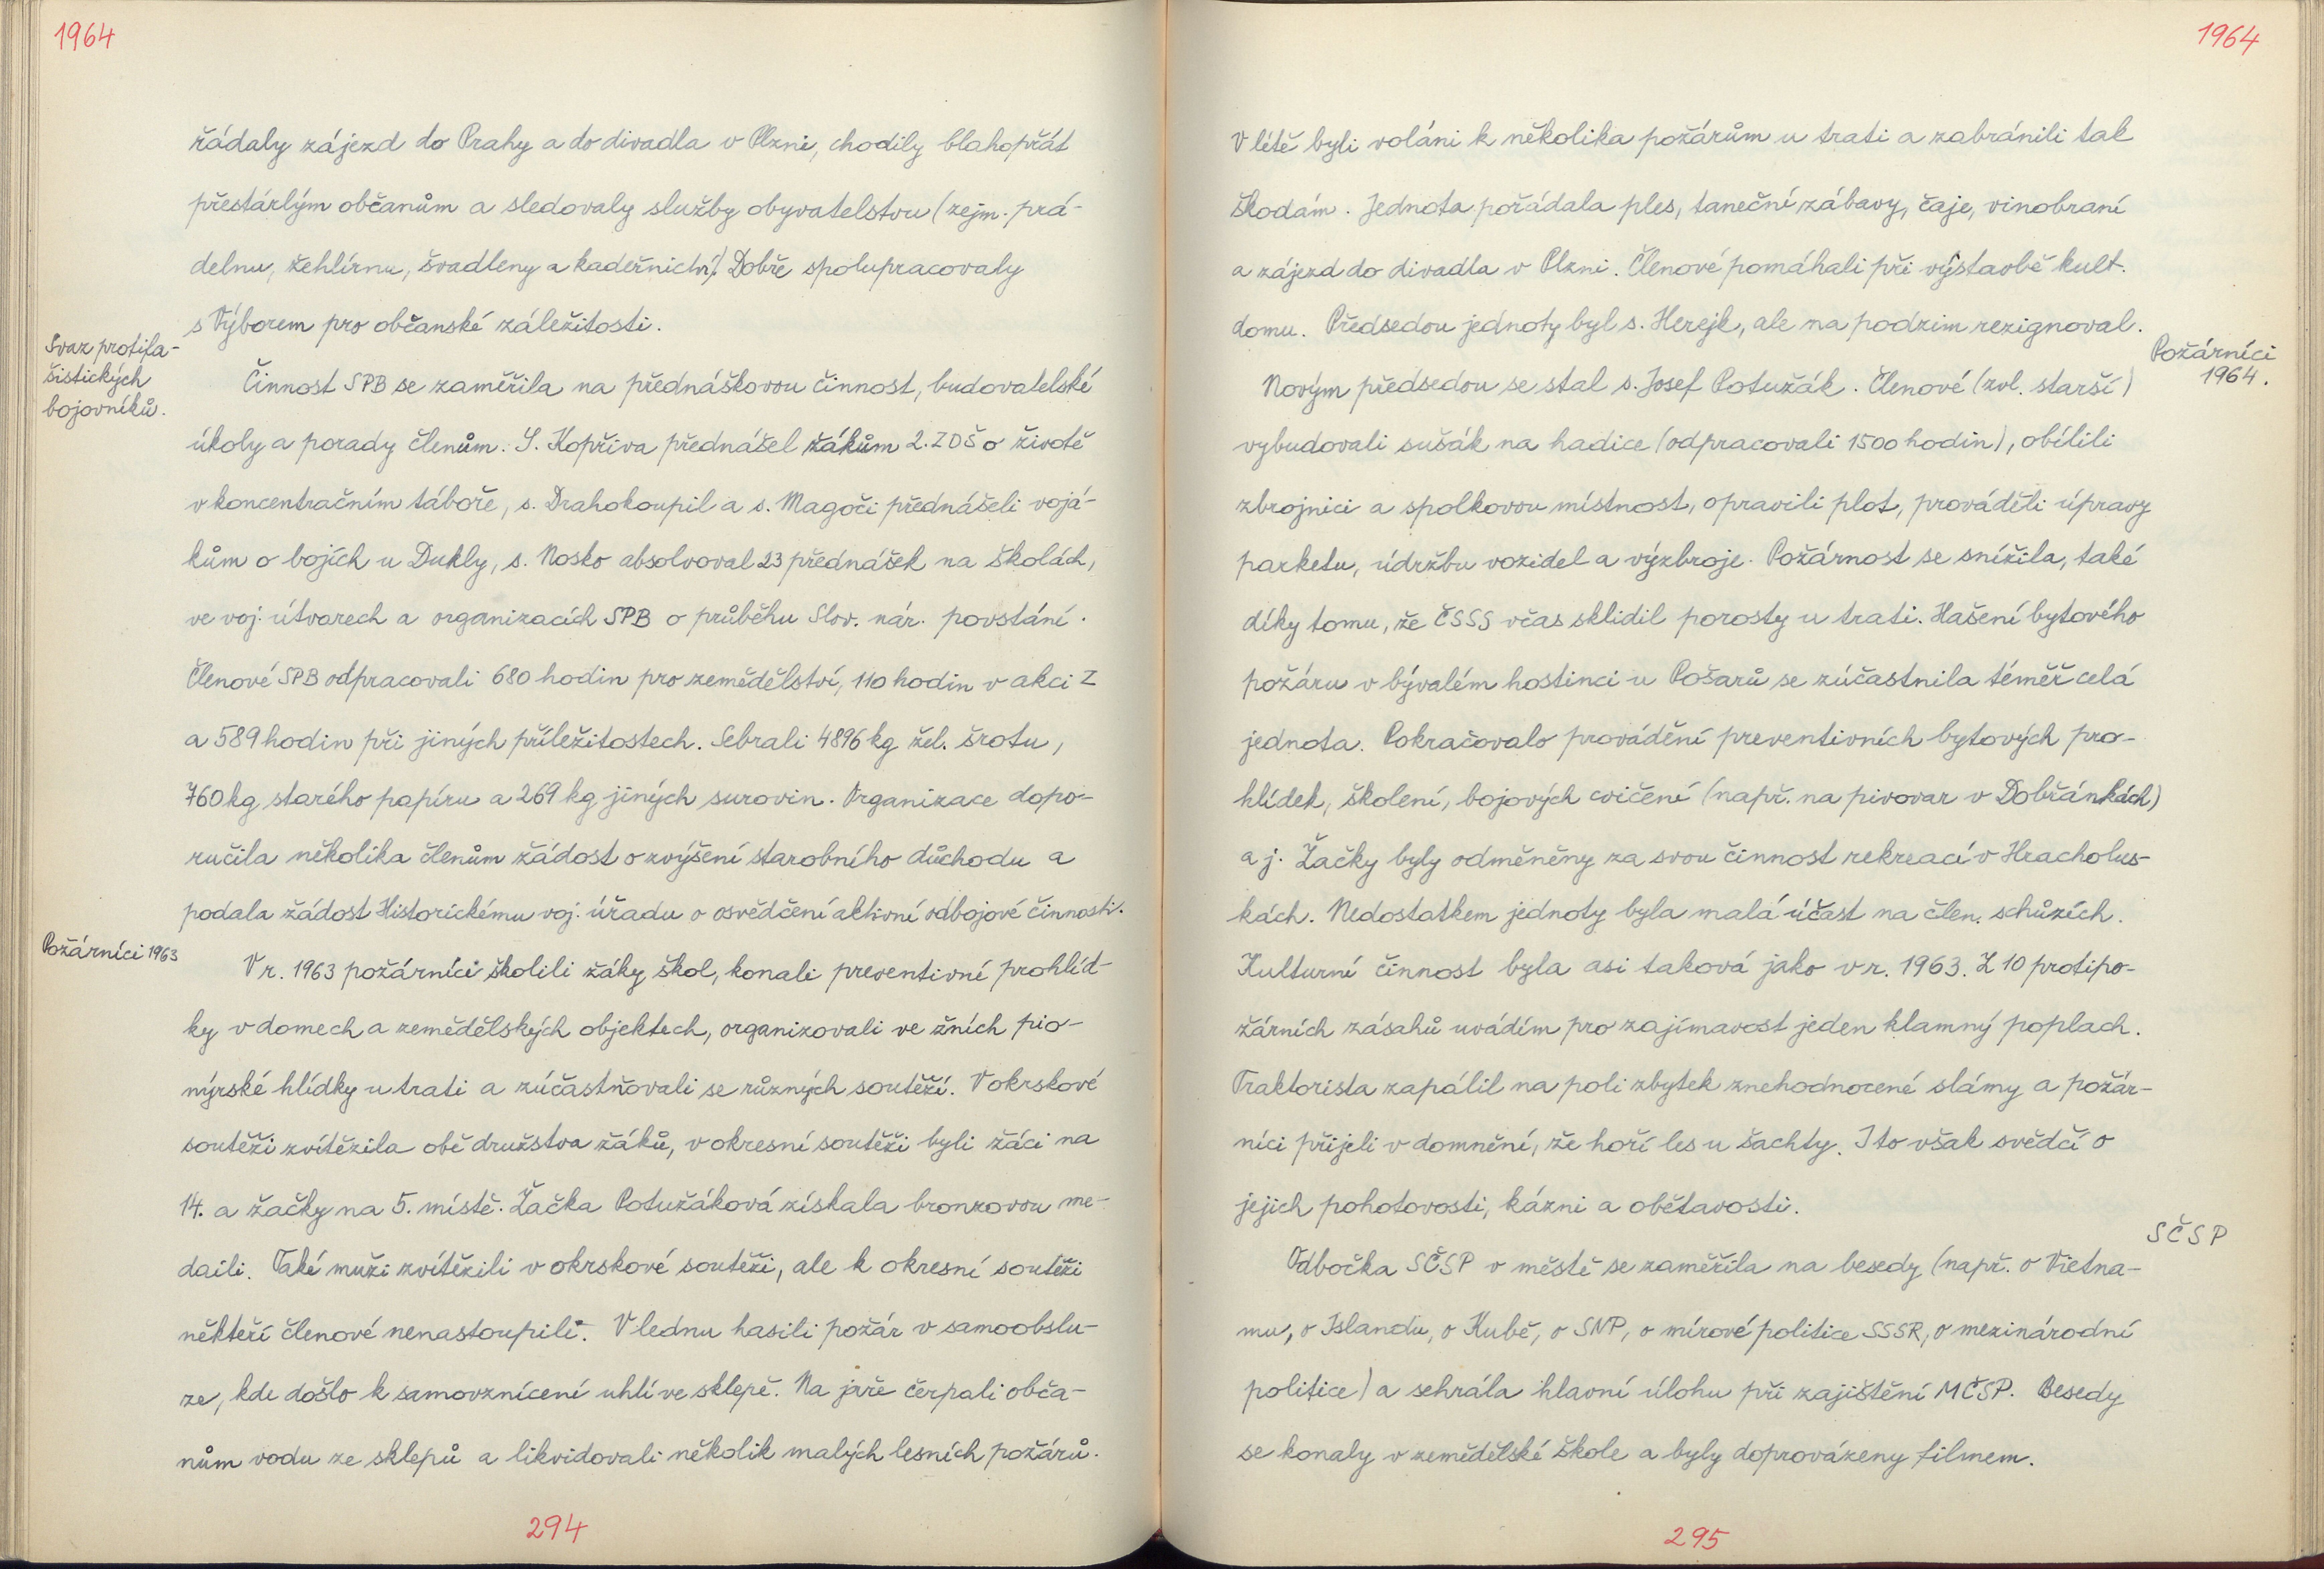 1964
řádaly zájezd do Prahy a do divadla v Plzni, chodily blahopřát
přestárlým občanům a sledovaly služby obyvatelstvu (zejm. prá-
delnu, žehlírnu, švadleny a kadeřnictví). Dobře spolupracovaly
s Výborem pro občanské záležitosti.
Svaz protifa-
šistických
bojovníků.
Činnost SPB se zaměřila na přednáškovou činnost, budovatelské
úkoly a porady členům. S. Kopřiva přednášel žákům 2. ZDŠ o životě
v koncentračním táboře, s. Drahokoupil a s. Magoči přednášeli vojá-
kům o bojích u Dukly, s. Nosko absolvoval 23 přednášek na školách,
ve voj. útvarech a organizacích SPB o průběhu Slov. nár. povstání.
Členové SPB odpracovali 680 hodin pro zemědělství, 110 hodin v akci Z
a 589 hodin při jiných příležitostech. Sebrali 4896 kg žel. šrotu,
760 kg starého papíru a 269 kg jiných surovin. Organizace dopo-
ručila několika členům žádost o zvýšení starobního důchodu a
podala žádost Historickému voj. úřadu o osvědčení aktivní odbojové činnosti.
Požárníci 1963
V r. 1963 požárníci školili žáky škol, konali preventivní prohlíd-
ky v domech a zemědělských objektech, organizovali ve žních pio-
nýrské hlídky u trati a zúčastňovali se různých soutěží. V okrskové
soutěži zvítězila obě družstva žáků, v okresní soutěži byli žáci na
14. a žačky na 5. místě. Žačka Potužáková získala bronzovou me-
daili. Také muži zvítězili v okrskové soutěži, ale k okresní soutěži
někteří členové nenastoupili. V lednu hasili požár v samoobslu-
ze, kde došlo k samovznícení uhlí ve sklepě. Na jaře čerpali obča-
nům vodu ze sklepů a likvidovali několik malých lesních požárů.
294
1964
V létě byli voláni k několika požárům u trati a zabránili tak
škodám. Jednota pořádala ples, taneční zábavy, čaje, vinobraní
a zájezd do divadla v Plzni. Členové pomáhali při výstavbě kult.
domu. Předsedou jednoty byl s. Herejk, ale na podzim rezignoval.
Požárníci
1964.
Novým předsedou se stal s. Josef Potužák. Členové (zvl. starší)
vybudovali sušák na hadice (odpracovali 1500 hodin), obílili
zbrojnici a spolkovou místnost, opravili plot, prováděli úpravy
parketu, údržbu vozidel a výzbroje. Požárnost se snížila, také
díky tomu, že ČSSS včas sklidil porosty u trati. Hašení bytového
požáru v bývalém hostinci u Pošarů se zúčastnila téměř celá
jednota. Pokračovalo provádění preventivních bytových pro-
hlídek, školení, bojových cvičení (např. na pivovar v Dobřánkách)
a j. Žačky byly odměněny za svou činnost rekreací v Hracholus-
kách. Nedostatkem jednoty byla malá účast na člen. schůzích.
Kulturní činnost byla asi taková jako v r. 1963. Z 10 protipo-
žárních zásahů uvádím pro zajímavost jeden klamný poplach.
Traktorista zapálil na poli zbytek znehodnocené slámy a požár-
níci přijeli v domnění, že hoří les u šachty. I to však svědčí o
jejich pohotovosti, kázni a obětavosti.
SČSP
Odbočka SČSP v městě se zaměřila na besedy (např. o Vietna-
mu, o Islandu, o Kubě, o SNP, o mírové politice SSSR, o mezinárodní
politice) a sehrála hlavní úlohu při zajištění MČSP. Besedy
se konaly v zemědělské škole a byly doprovázeny filmem.
295